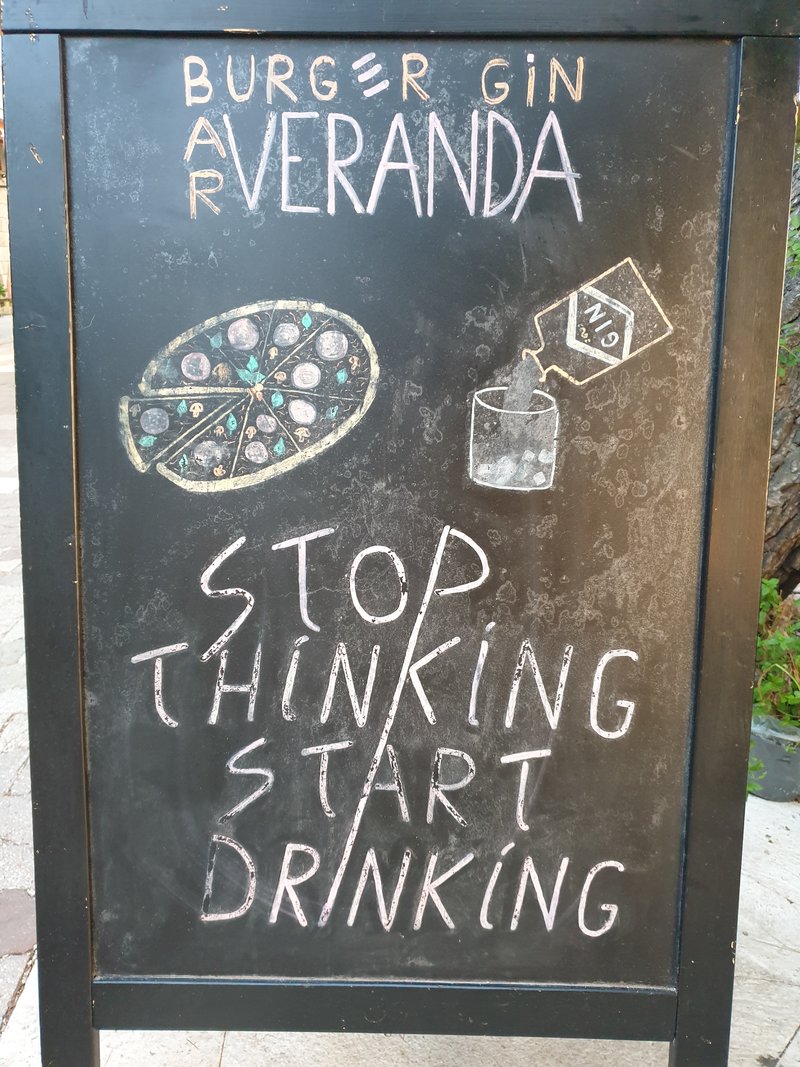 BURGER GiN
BAR VERANDA
GIN
STOP
THiNKiNG
START
DRiNKiNG